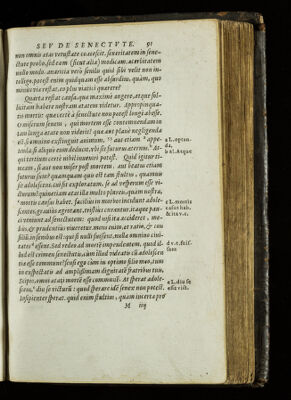 SEV DE SENECTVTE. 91
non omnis ætas vetustate coacescit. seueritatem in sene-
ctute probo, sed eam (sicut alia) modicam. acerbitatem
nullo modo. auaritia vero senilis quid sibi velit non in-
telligo. potest enim quidquam esse absurdius, quam, quo
minus viæ restat, eo plus viatici quærere?
Quarta restat causa, quæ maximè angere, atque sol-
licitam habere nostram ætatem videtur. Appropinqua-
tio mortis: quæ certè à senectute non potest longè abesse.
O miserum senem, qui mortem esse contemnendam in
tam longa ætate non viderit! quæ aut planè negligenda
est, si omnino extinguit animum: aut etiam appe-
tenda, si aliquò eum deducit, vbi sit futurus æternus. At-
qui tertium certè nihil inueniri potest. Quid igitur ti-
meam, si aut non miser post mortem, aut beatus etiam
futurus sum? quamquam quis est tam stultus, quamuis
sit adolescens, cui sit exploratum, se ad vesperum esse vi-
cturum? quinetiam ætas illa multo plures, quàm nostra,
mortis casus habet. facilius in morbos incidunt adole-
scentes, grauius ægrotant, tristius curantur. itaque pau-
ci veniunt ad senectutem: quod ni ita accideret, me-
lius, & prudentius viueretur. mens enim, & ratio, & con-
silium in senibus est: qui si nulli fuissent, nulla omnino ciui-
tates essent. Sed redeo ad mortem impendentem. quod il-
lud est crimen senectutis, cùm illud videatis cum adolescen-
tia esse commune? sensi ego cùm in optimo filio meo, tum
in exspectatis ad amplissimam dignitatem fratribus tuis,
Scipio, omni ætati mortem esse communem. At sperat adole-
scens, diu se victurum: quod sperare idem senex non potest.
Insipienter sperat. quid enim stultius, quàm incerta pro
M iij